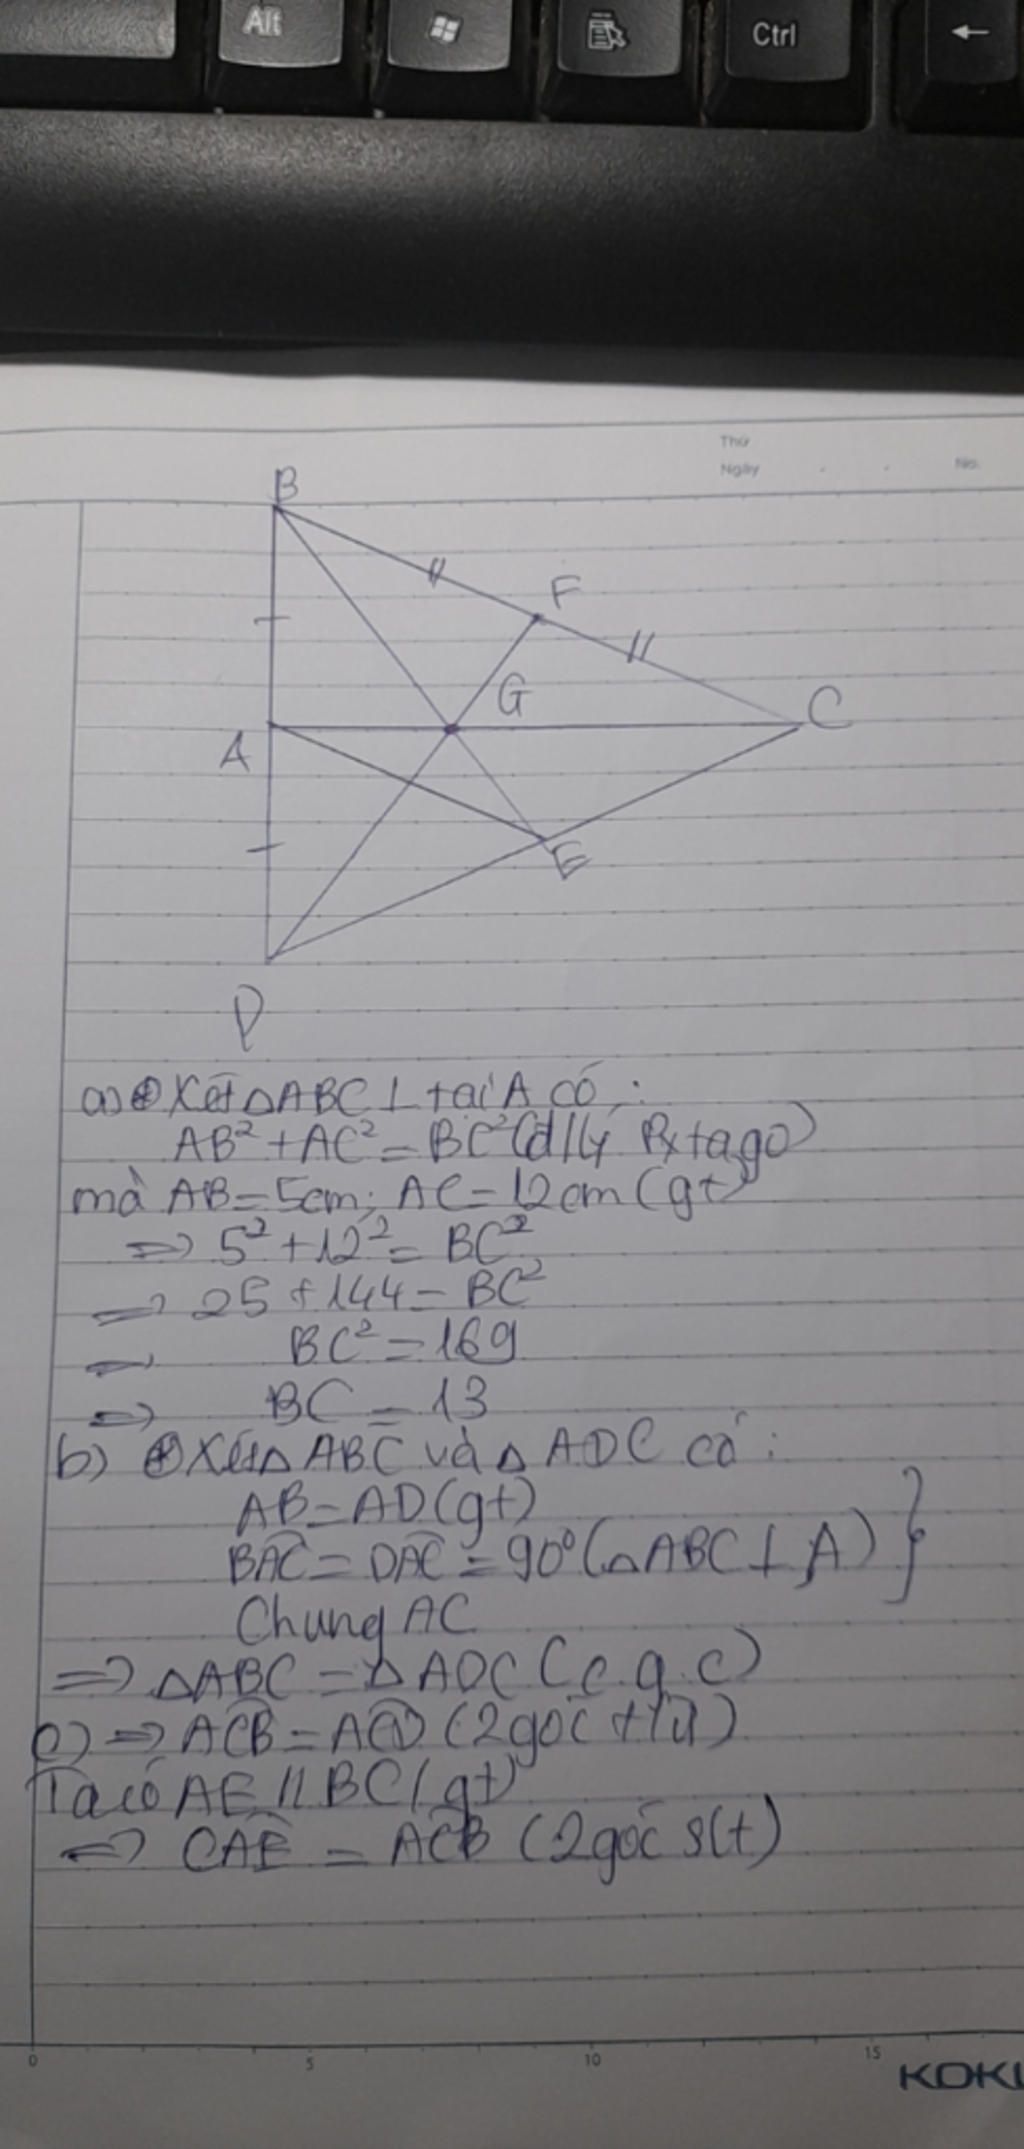 Alt
Ctrl
Thứ
Ngày
No.
B
F
G
C
A
E
D
a) ⊕ Xét △ABC ⊥ tại A có:
AB² + AC² = BC² (đ/lý Pytago)
mà AB = 5cm; AC = 12cm (gt)
=> 5² + 12² = BC²
=> 25 + 144 = BC²
=> BC² = 169
=> BC = 13
b) ⊕ Xét △ ABC và △ ADC có:
AB = AD (gt)
BAC = DAC = 90° (△ABC ⊥ A) }
Chung AC
=> △ABC = △ ADC (c.g.c)
c) => ACB = ACD (2 góc t/ứ)
Ta có AE // BC (gt)
=> CAE = ACB (2 góc slt)
0 5 10 15
KOKU